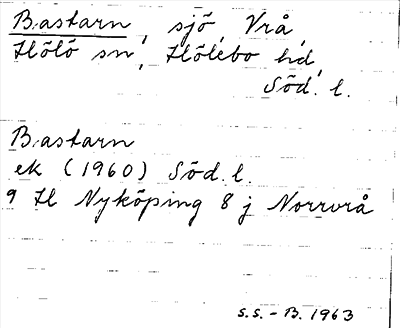 Bastarn, sjö, Vrå,
Hölö sn, Hölebo hd,
Söd. l.
Bastarn
ek (1960) Söd. l.
9 H Nyköping 8 j Norrvrå
S.S. - B. 1963